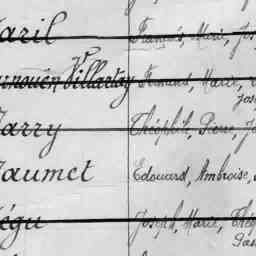 aril François, Marie, Jos
Villartay Fernand, Marie,
Jos
arry Théophile, Pierre, J
aumet Edouard, Ambroise,
égu Joseph, Marie, Thé